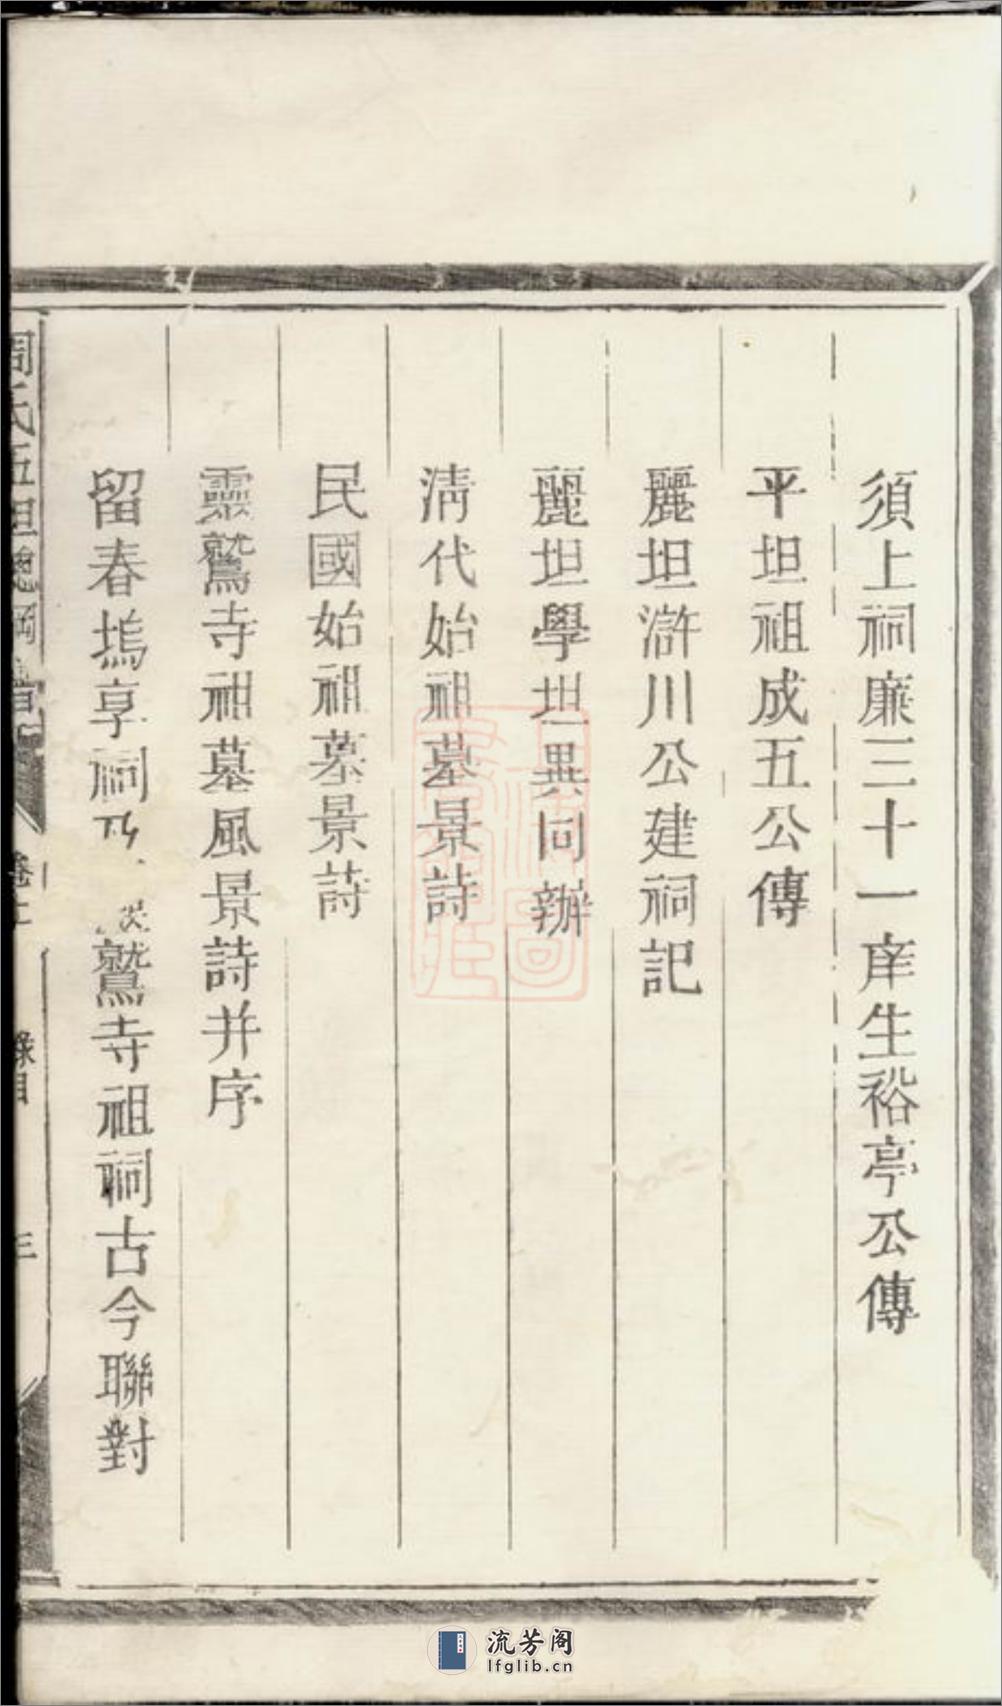 須上祠廉三十一庠生裕亭公傳
平坦祖成五公傳
麗坦滸川公建祠記
麗坦學坦異同辦
清代始祖墓景詩
民國始祖墓景詩
靈鷲寺祖墓風景詩并序
留春塢享祠 鷲寺祖祠古今聯對
周氏五坦總綱 卷上 錄目 三
流芳阁
lfglib.cn